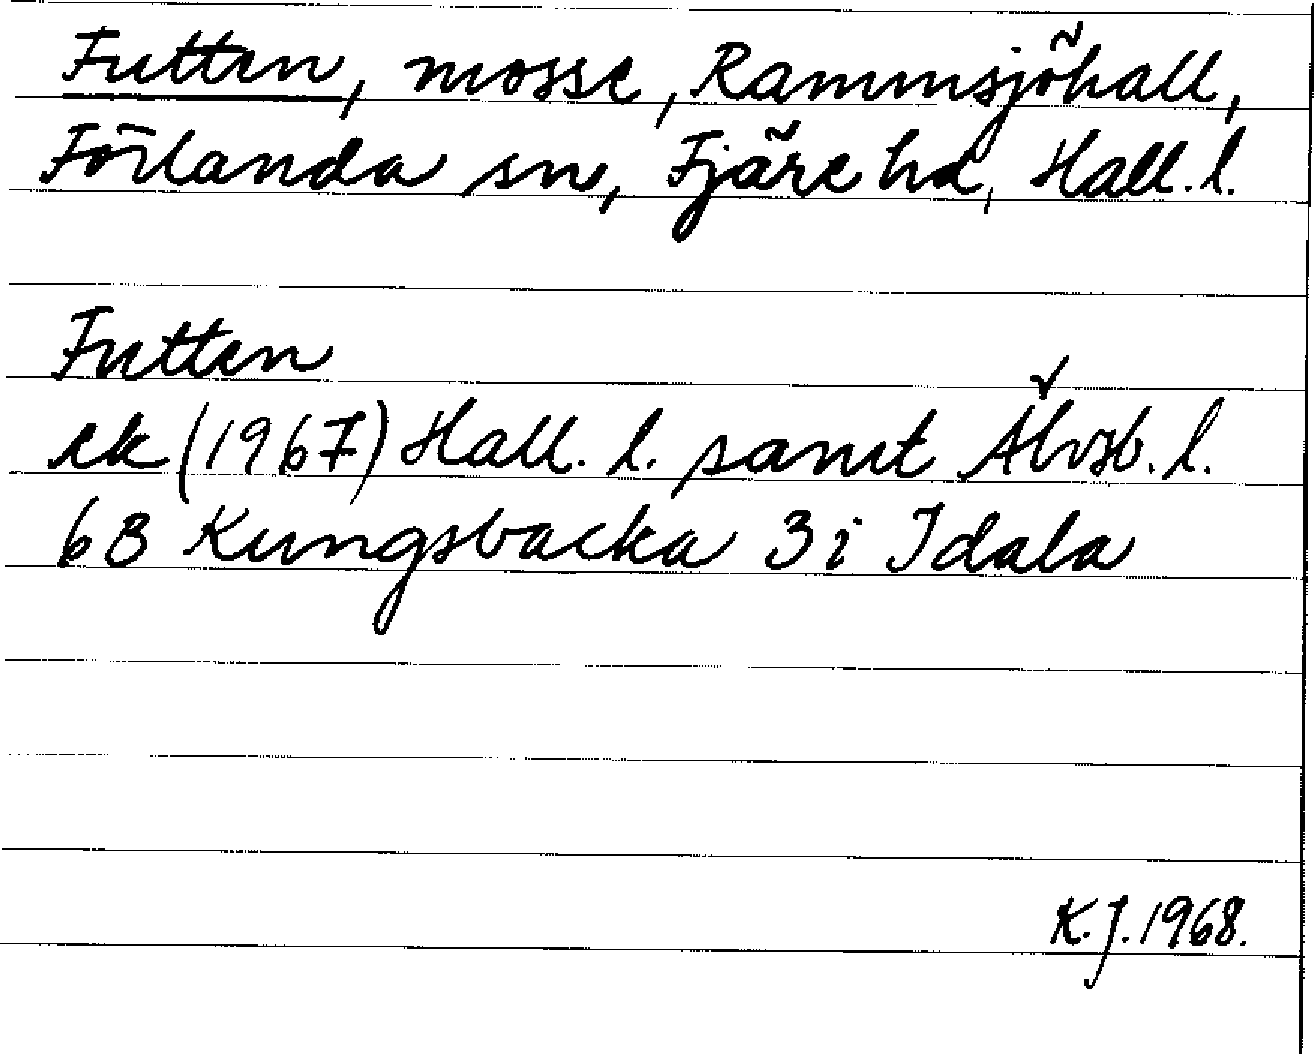 Futten, mosse, Rammsjöhall,
Förlanda sn, Fjäre hd, Hall. l.
Futten
ek (1967) Hall. l. samt Älvsb. l.
6B Kungsbacka 3i Idala
K. J. 1968.